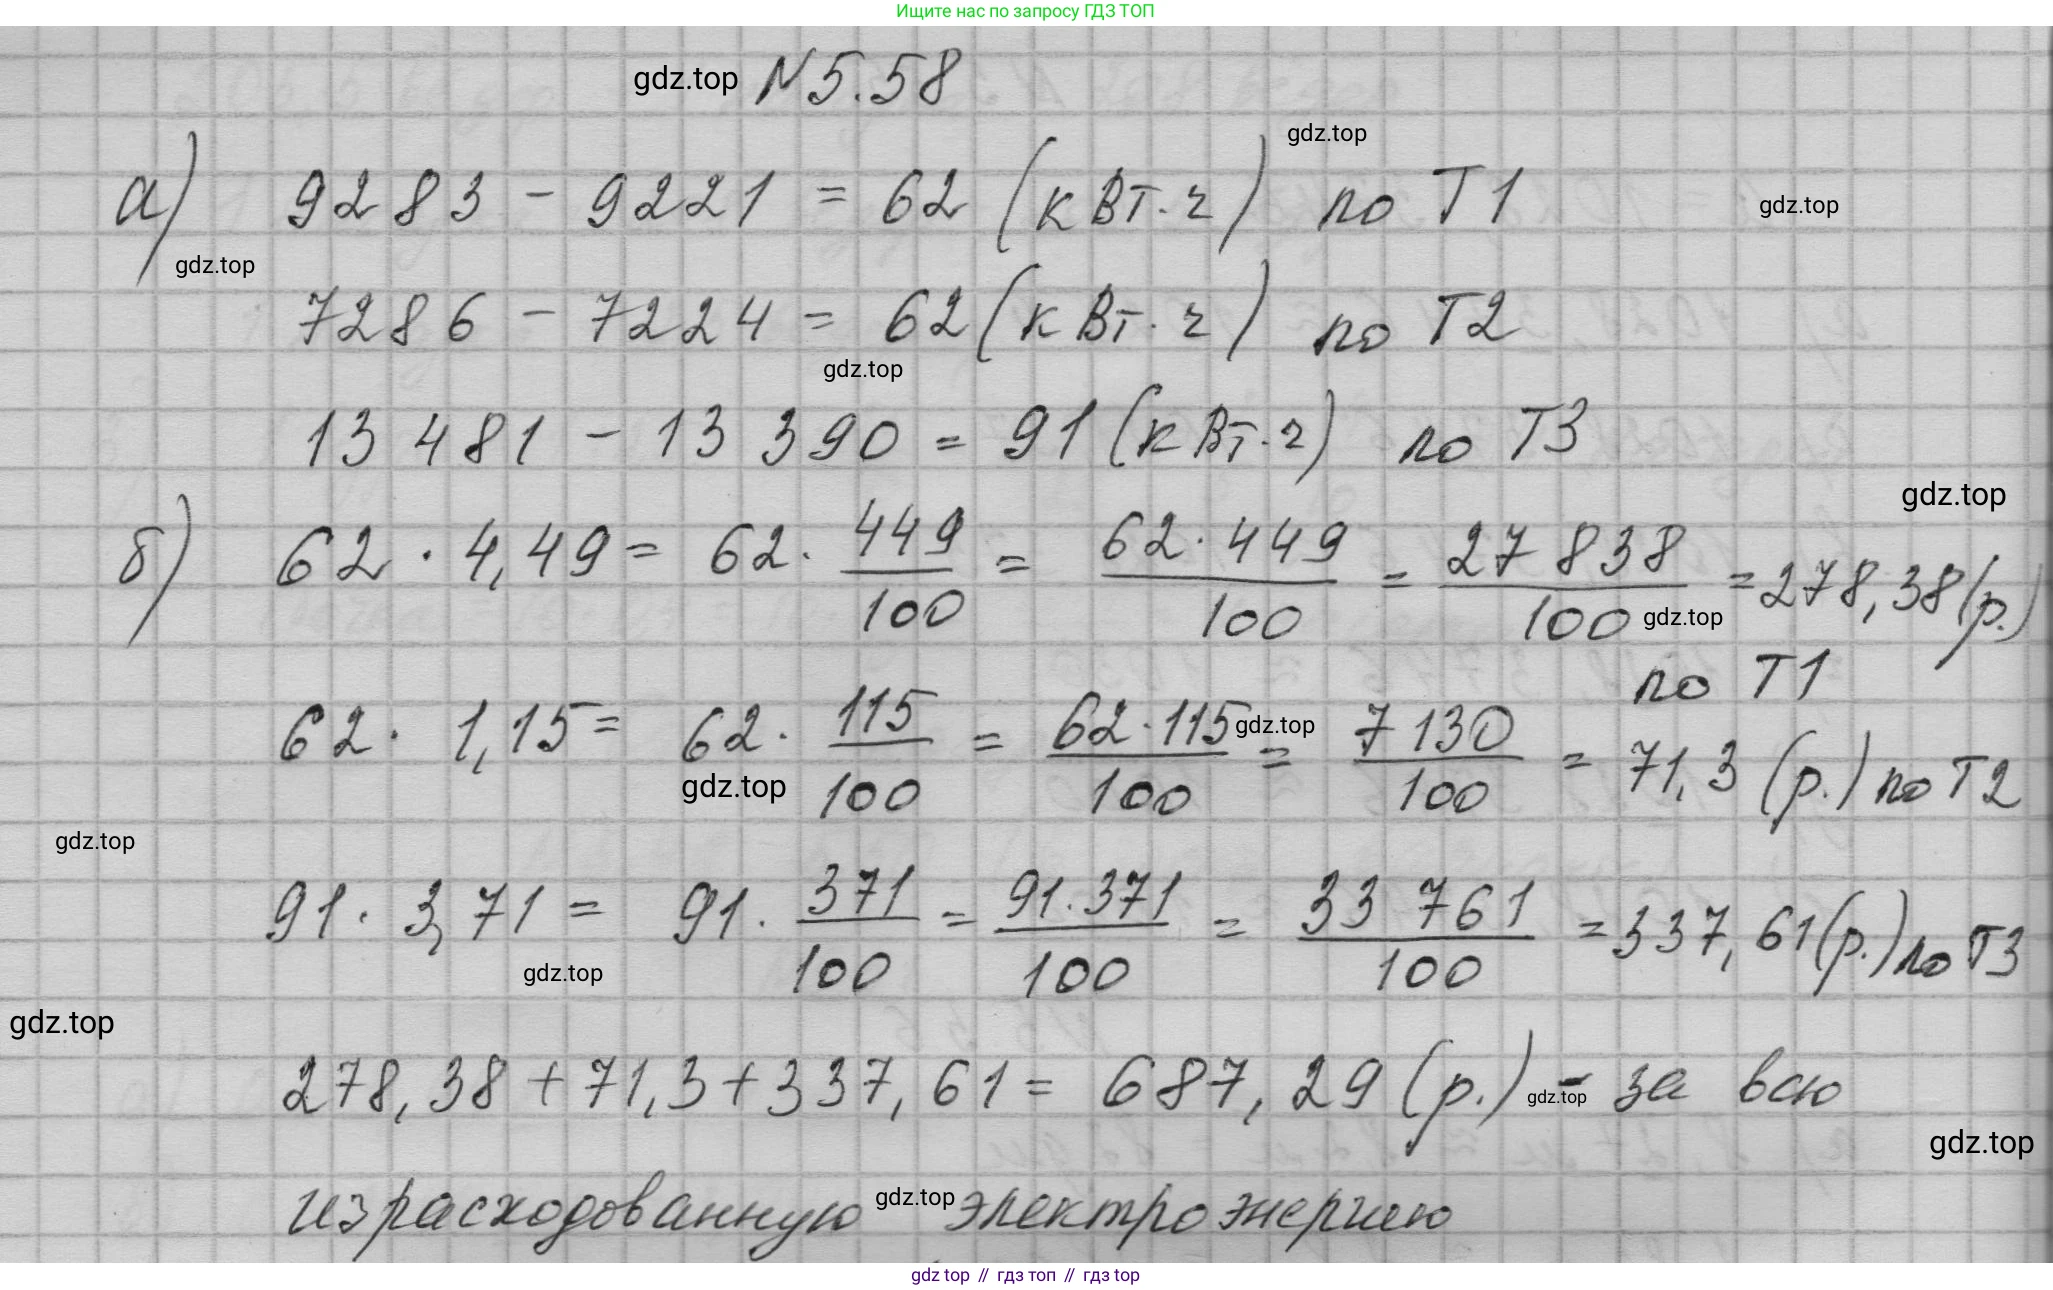 Ищите нас по запросу ГДЗ ТОП
gdz.top №5.58
gdz.top
а) 9283 - 9221 = 62 (кВт·ч) по Т1
gdz.top
gdz.top
7286 - 7224 = 62 (кВт·ч) по Т2
gdz.top
13 481 - 13 390 = 91 (кВт·ч) по Т3
gdz.top
б) 62 · 4,49 = 62 · 449/100 = 62·449/100 = 27 838/100 = 278,38 (р.)
gdz.top
по Т1
62 · 1,15 = 62 · 115/100 = 62·115/100 = 7 130/100 = 71,3 (р.) по Т2
gdz.top
gdz.top
gdz.top
91 · 3,71 = 91 · 371/100 = 91·371/100 = 33 761/100 = 337,61 (р.) по Т3
gdz.top
gdz.top
278,38 + 71,3 + 337,61 = 687,29 (р.) - за всю
gdz.top
gdz.top
израсходованную электроэнергию
gdz.top
gdz top // гдз топ // гдз top